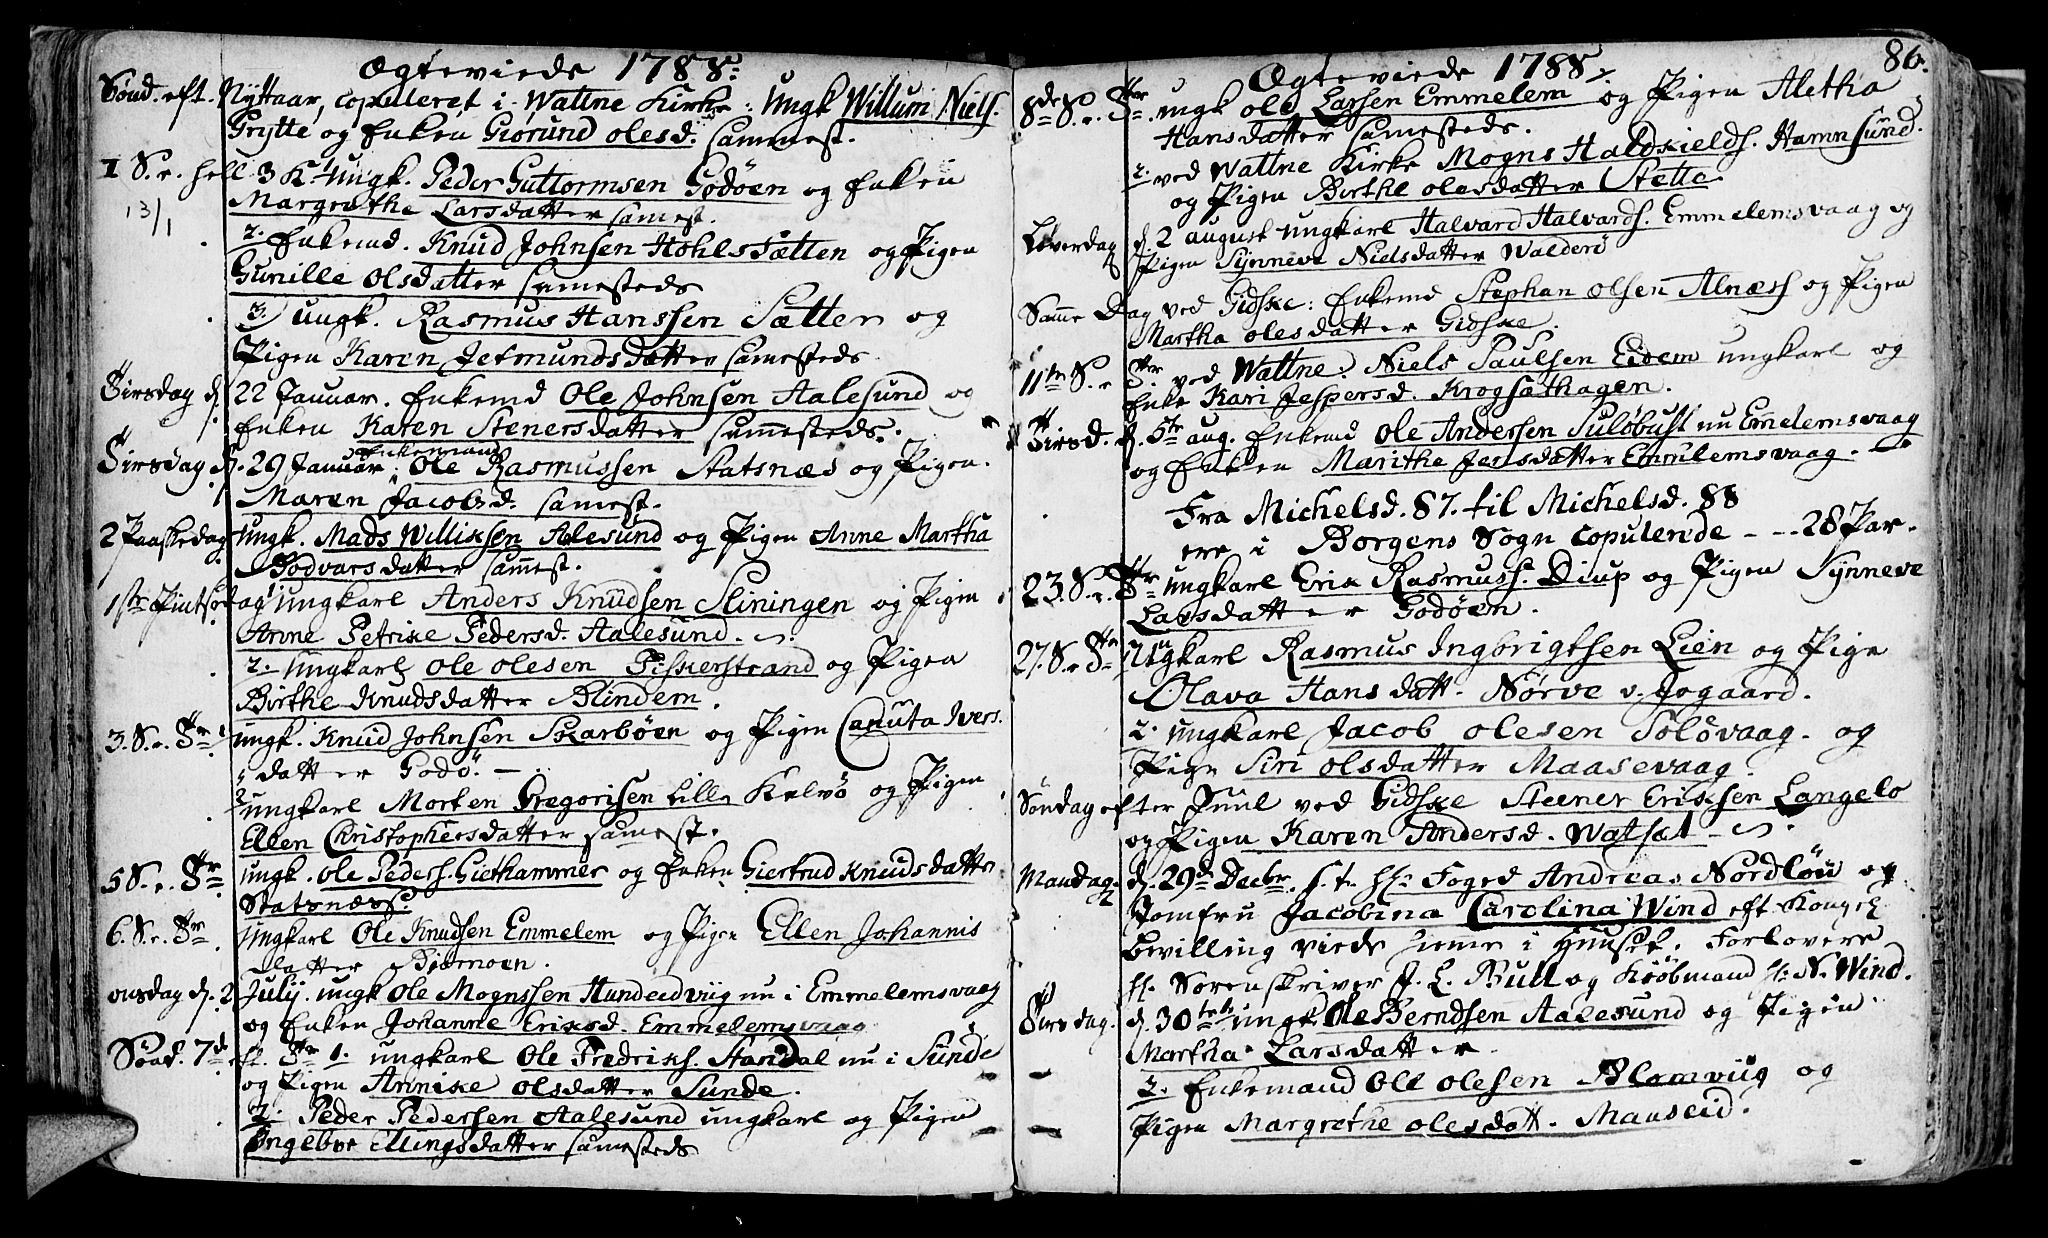 Ægteviede 1788.
Sønd. eft. Nyttaar, copuleret i Wattne Kirke: Ungk Willum Niels.
Grytte og Enken Giørund olesd. sammest.
1 S. e. hell. 3 K. Ungk. Peder Guttormsen Godøen og Enken
13/1
Margrethe Larsdatter samest.
2. Enkemd. Knud Johnsen Hohlssætten og Pigen
Gunille Olsdatter samesteds
3 ungk. Rasmus Hanssen Sætter og
Pigen Karen Jetmundsdatter samesteds
Tirsdag d. 22 Januar. Enkemd Ole Johnsen Aalesund og
Enken Karen Stenersdatter samesteds.
Tirsdag d. 29 Januar: Enkemand Ole Rasmussen Statsnæs og Pigen
Maren Jacobsd. samest.
2 Paaskedag Ungk. Mads Willixsen Alesund og Pigen Anne Martha
Godvarsdatter samest.
1ste Pintsedag Ungkarl Anders Knudsen Sliningen og Pigen
Anne Petrike Pedersd. Aalesund.
2. Ungkarl ole olesen Fiskerstrand og Pigen
Birthe Knudsdatter Blindem.
3. S. e. Tr. ungk. Knud Johnsen Skarbøen og Pigen Canuta Ivers.
datter Godø.
2 ungkarl Morten Gregorisen Lille Kalvø og Pigen
Ellen Christophersdatter samest.
5 S. e. Tr. ungk. ole Peders. Giethammer og Enken Giertrud Knudsdatter
Statsnæss.
6. S. e. Tr. Ungkarl Ole Knudsen Emmelem og Pigen Ellen Johannis
datter Biørnoen.
onsdag d. 2 July. ungk Ole Mognssen Hundeidviig nu i Emmelemsvaag
og Enken Johanne Eriksd. Emmelemsvaag
Sønd. 7de eft. Tr 1. ungkarl Ole Fredriks. Standal nu i Sunde
og Pigen Annike olsdatter Sunde.
2. Peder Pedersen Aalesund ungkarl og Pigen
Ingebor Ellingsdatter samesteds
Ægteviede 1788.
86.
8de S. e. Tr. ungk ole Larsen Emmelem og Pigen Aletha
Hansdatter samesteds.
2. ved Wattne Kirke Mogns Haldkields. Hamnsund.
og Pigen Birthe olesdatter Stette.
Løverdag d. 2 august ungkarl Halvard Halvards. Emmelemsvaag og
Pigen Synneve Nielsdatter Walderø
Samme Dag ved Gidske: Enkemd Stephan olsen Alnæss og Pigen
Martha olesdatter Gidske.
11te S. e. Tr. ved Wattne. Niels Paulsen Eidem ungkarl og
Enke Kari Jespersd. Krogsæthagen.
Tirsd. d. 5te aug. Enkemd Ole Andersen Sulebust nu Emmelemsvaag
og Enken Marithe Jensdatter Emmelemsvaag.
Fra Michelsd. 87. til Michelsd. 88
ere i Borgens Sogn copulerede - - 28 Par.
23. S. e. Tr. ungkarl Erik Rasmuss. Diup og Pigen Synneve
Larsdatter Godøen.
27. S. e. Tr. Ungkarl Rasmus Ingbrigtsen Lien og Pige
Olava Hansdatt. Nørve v. Gogaard.
2. ungkarl Jacob olesen Soløvaag. og
Pige Siri olsdatter Maasevaag.
Søndag efter Juul ved Gidske Steener Eriksen Langelo
og Pigen Karen Andersd. Watsæt
Mandag d. 29de Decbr. s. t. Hr: Foged Andreas Nordlöu og
Jomfru Jacobina Carolina Wind eft. Kongel
Bevilling viede hieme i Huuset. Forlovere
Hr. Sorenskriver J. L. Bull og Kiøbmand Hr: N. Wind.
Tirsdag. d. 30te ungk. Ole Berndsen Aalesund og Pigen
Martha Larsdatter.
2. Enkemand Ole olesen Blomviig og
Pigen Margrethe olesdatt. Mauseid.